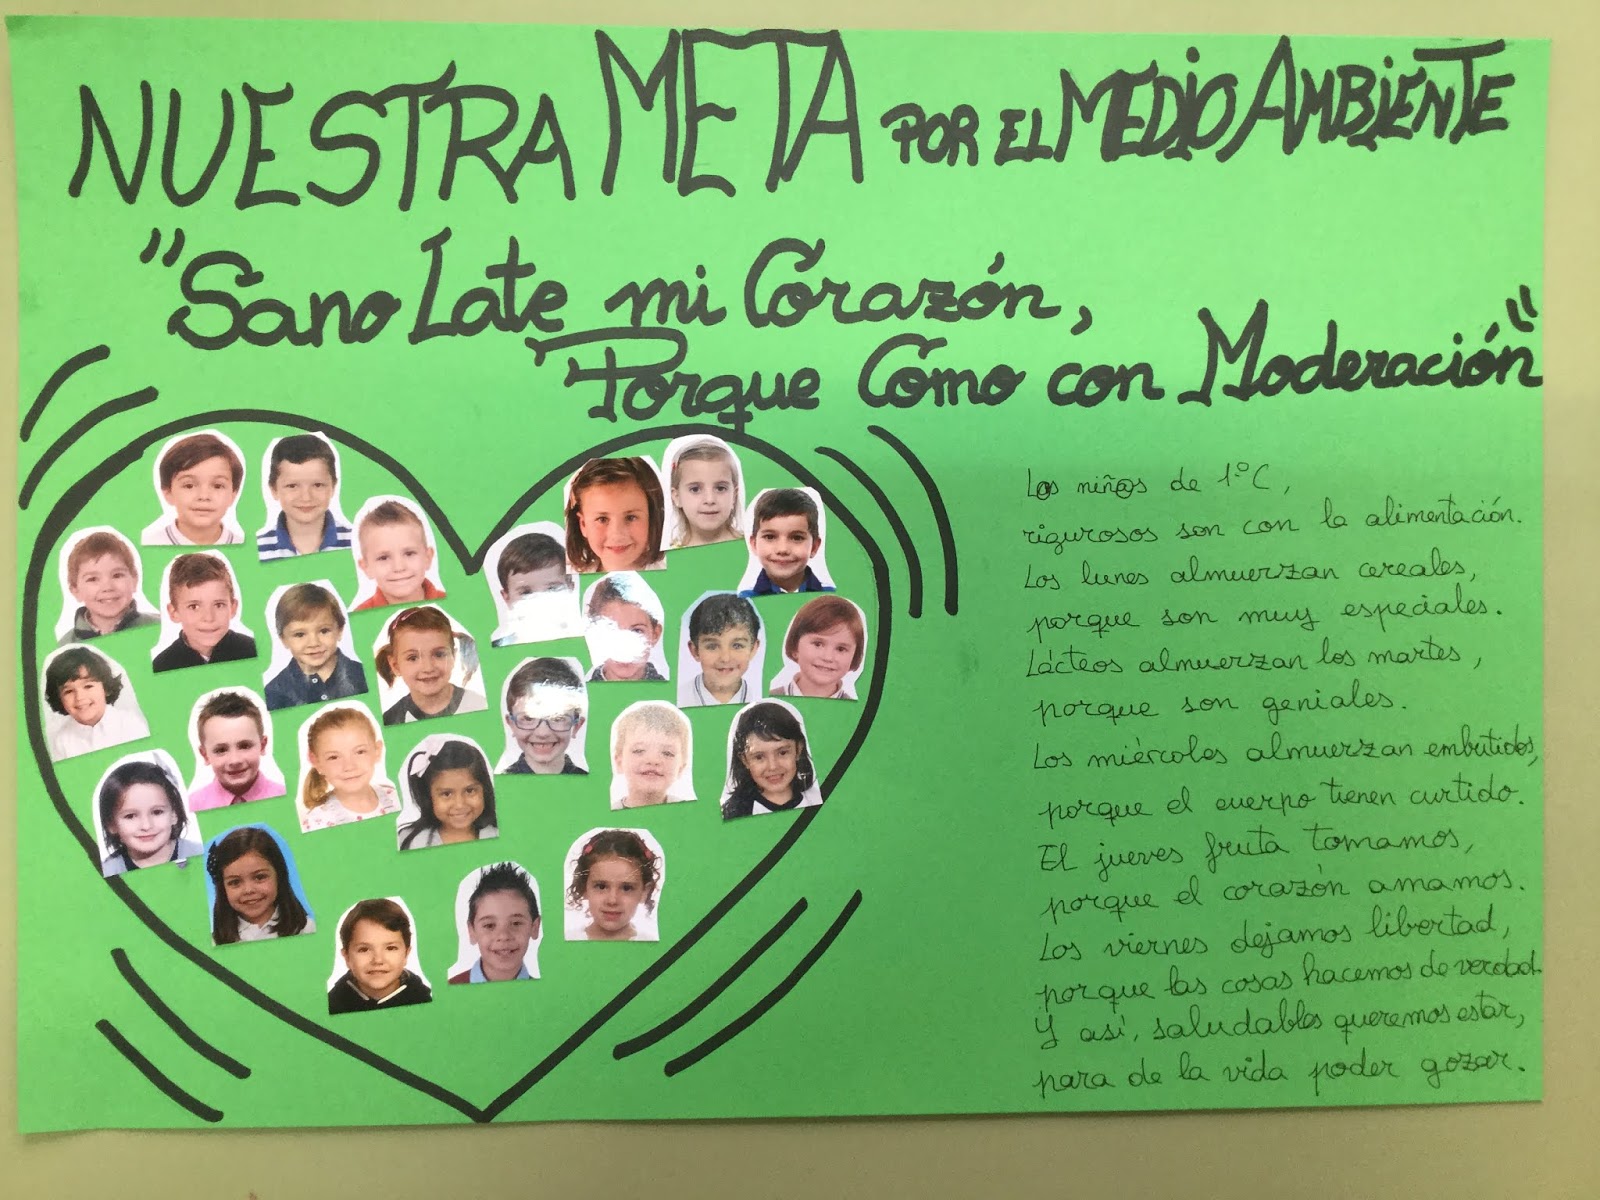 NUESTRA META POR EL MEDIO AMBIENTE
"Sano Late mi Corazón,
Porque Como con Moderación"
L@s niñ@s de 1º C,
rigurosos son con la alimentación.
Los lunes almuerzan cereales,
porque son muy especiales.
Lácteos almuerzan los martes,
porque son geniales.
Los miércoles almuerzan embutidos,
porque el cuerpo tienen curtido.
El jueves fruta tomamos,
porque el corazón amamos.
Los viernes dejamos libertad,
porque las cosas hacemos de verdad.
Y así, saludables queremos estar,
para de la vida poder gozar.